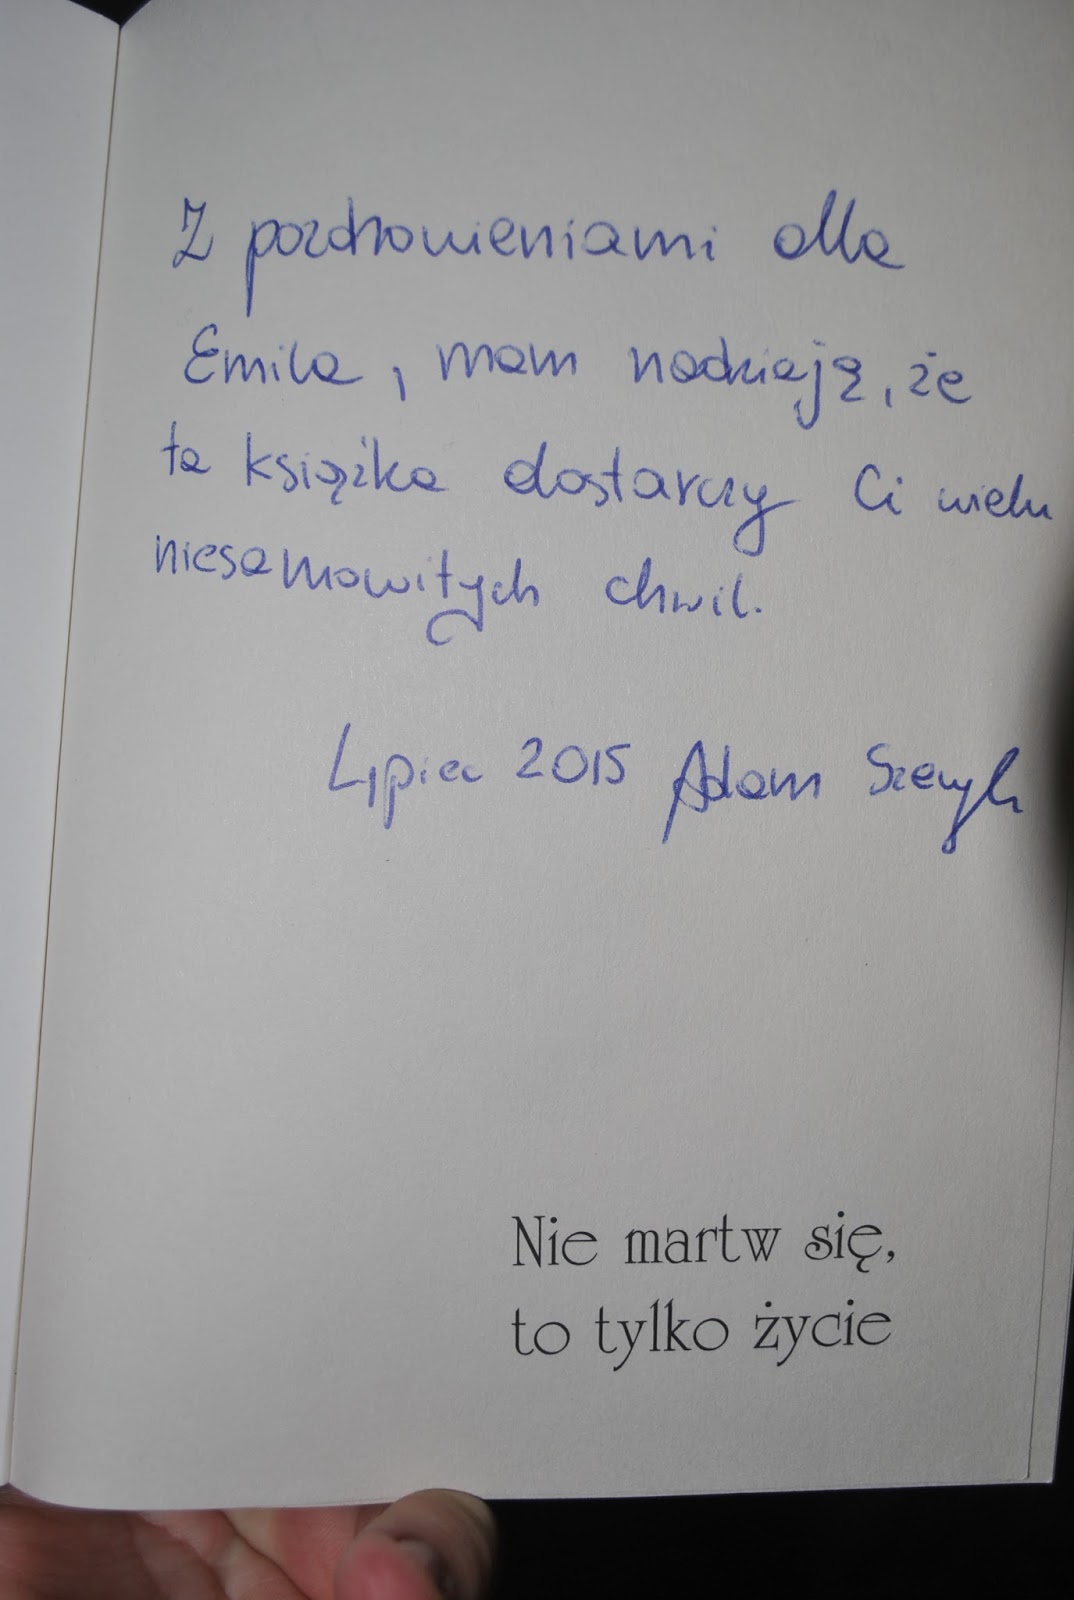 Z pozdrowieniami dla
Emila, mam nadzieję, że
ta książka dostarczy Ci wielu
niesamowitych chwil.
Lipiec 2015 Adam Szewyk
Nie martw się,
to tylko życie